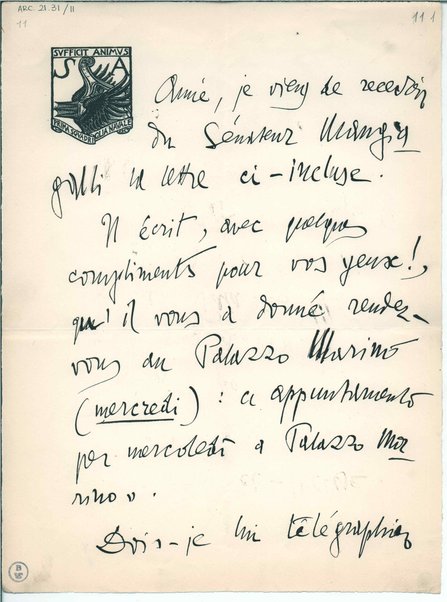 ARC. 21.31/11
11
11 1
SVFFICIT ANIMVS
S A
PRIMA SQVADRIGLIA NAVALE
Amie, je viens de recevoir
du Sénateur Mangia
galli la lettre ci-incluse.
Il écrit, avec quelques
compliments pour vos yeux!,
qu'il vous a donné rendez-
vous au Palazzo Marino
(mercredi) : « appuntamento
per mercoledì a Palazzo Ma
rino ».
Dois-je lui télégraphier
B